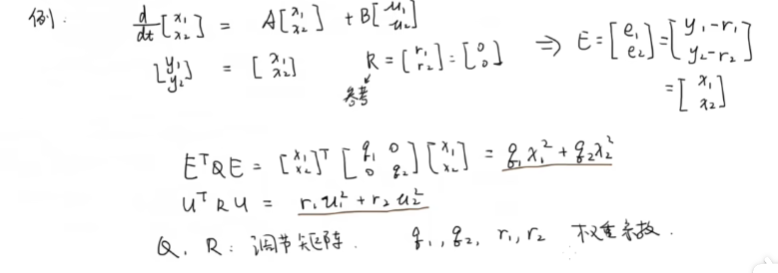 例: d/dt [x₁ x₂] = A[x₁ x₂] + B[u₁ u₂]
[y₁ y₂] = [x₁ x₂] R = [r₁ r₂] = [0 0] ⇒ E = [e₁ e₂] = [y₁-r₁ y₂-r₂]
参考 = [x₁ x₂]
EᵀQE = [x₁ x₂]ᵀ [q₁ 0 0 q₂] [x₁ x₂] = q₁x₁² + q₂x₂²
uᵀRu = r₁u₁² + r₂u₂²
Q, R: 调节矩阵. q₁, q₂, r₁, r₂ 权重系数.